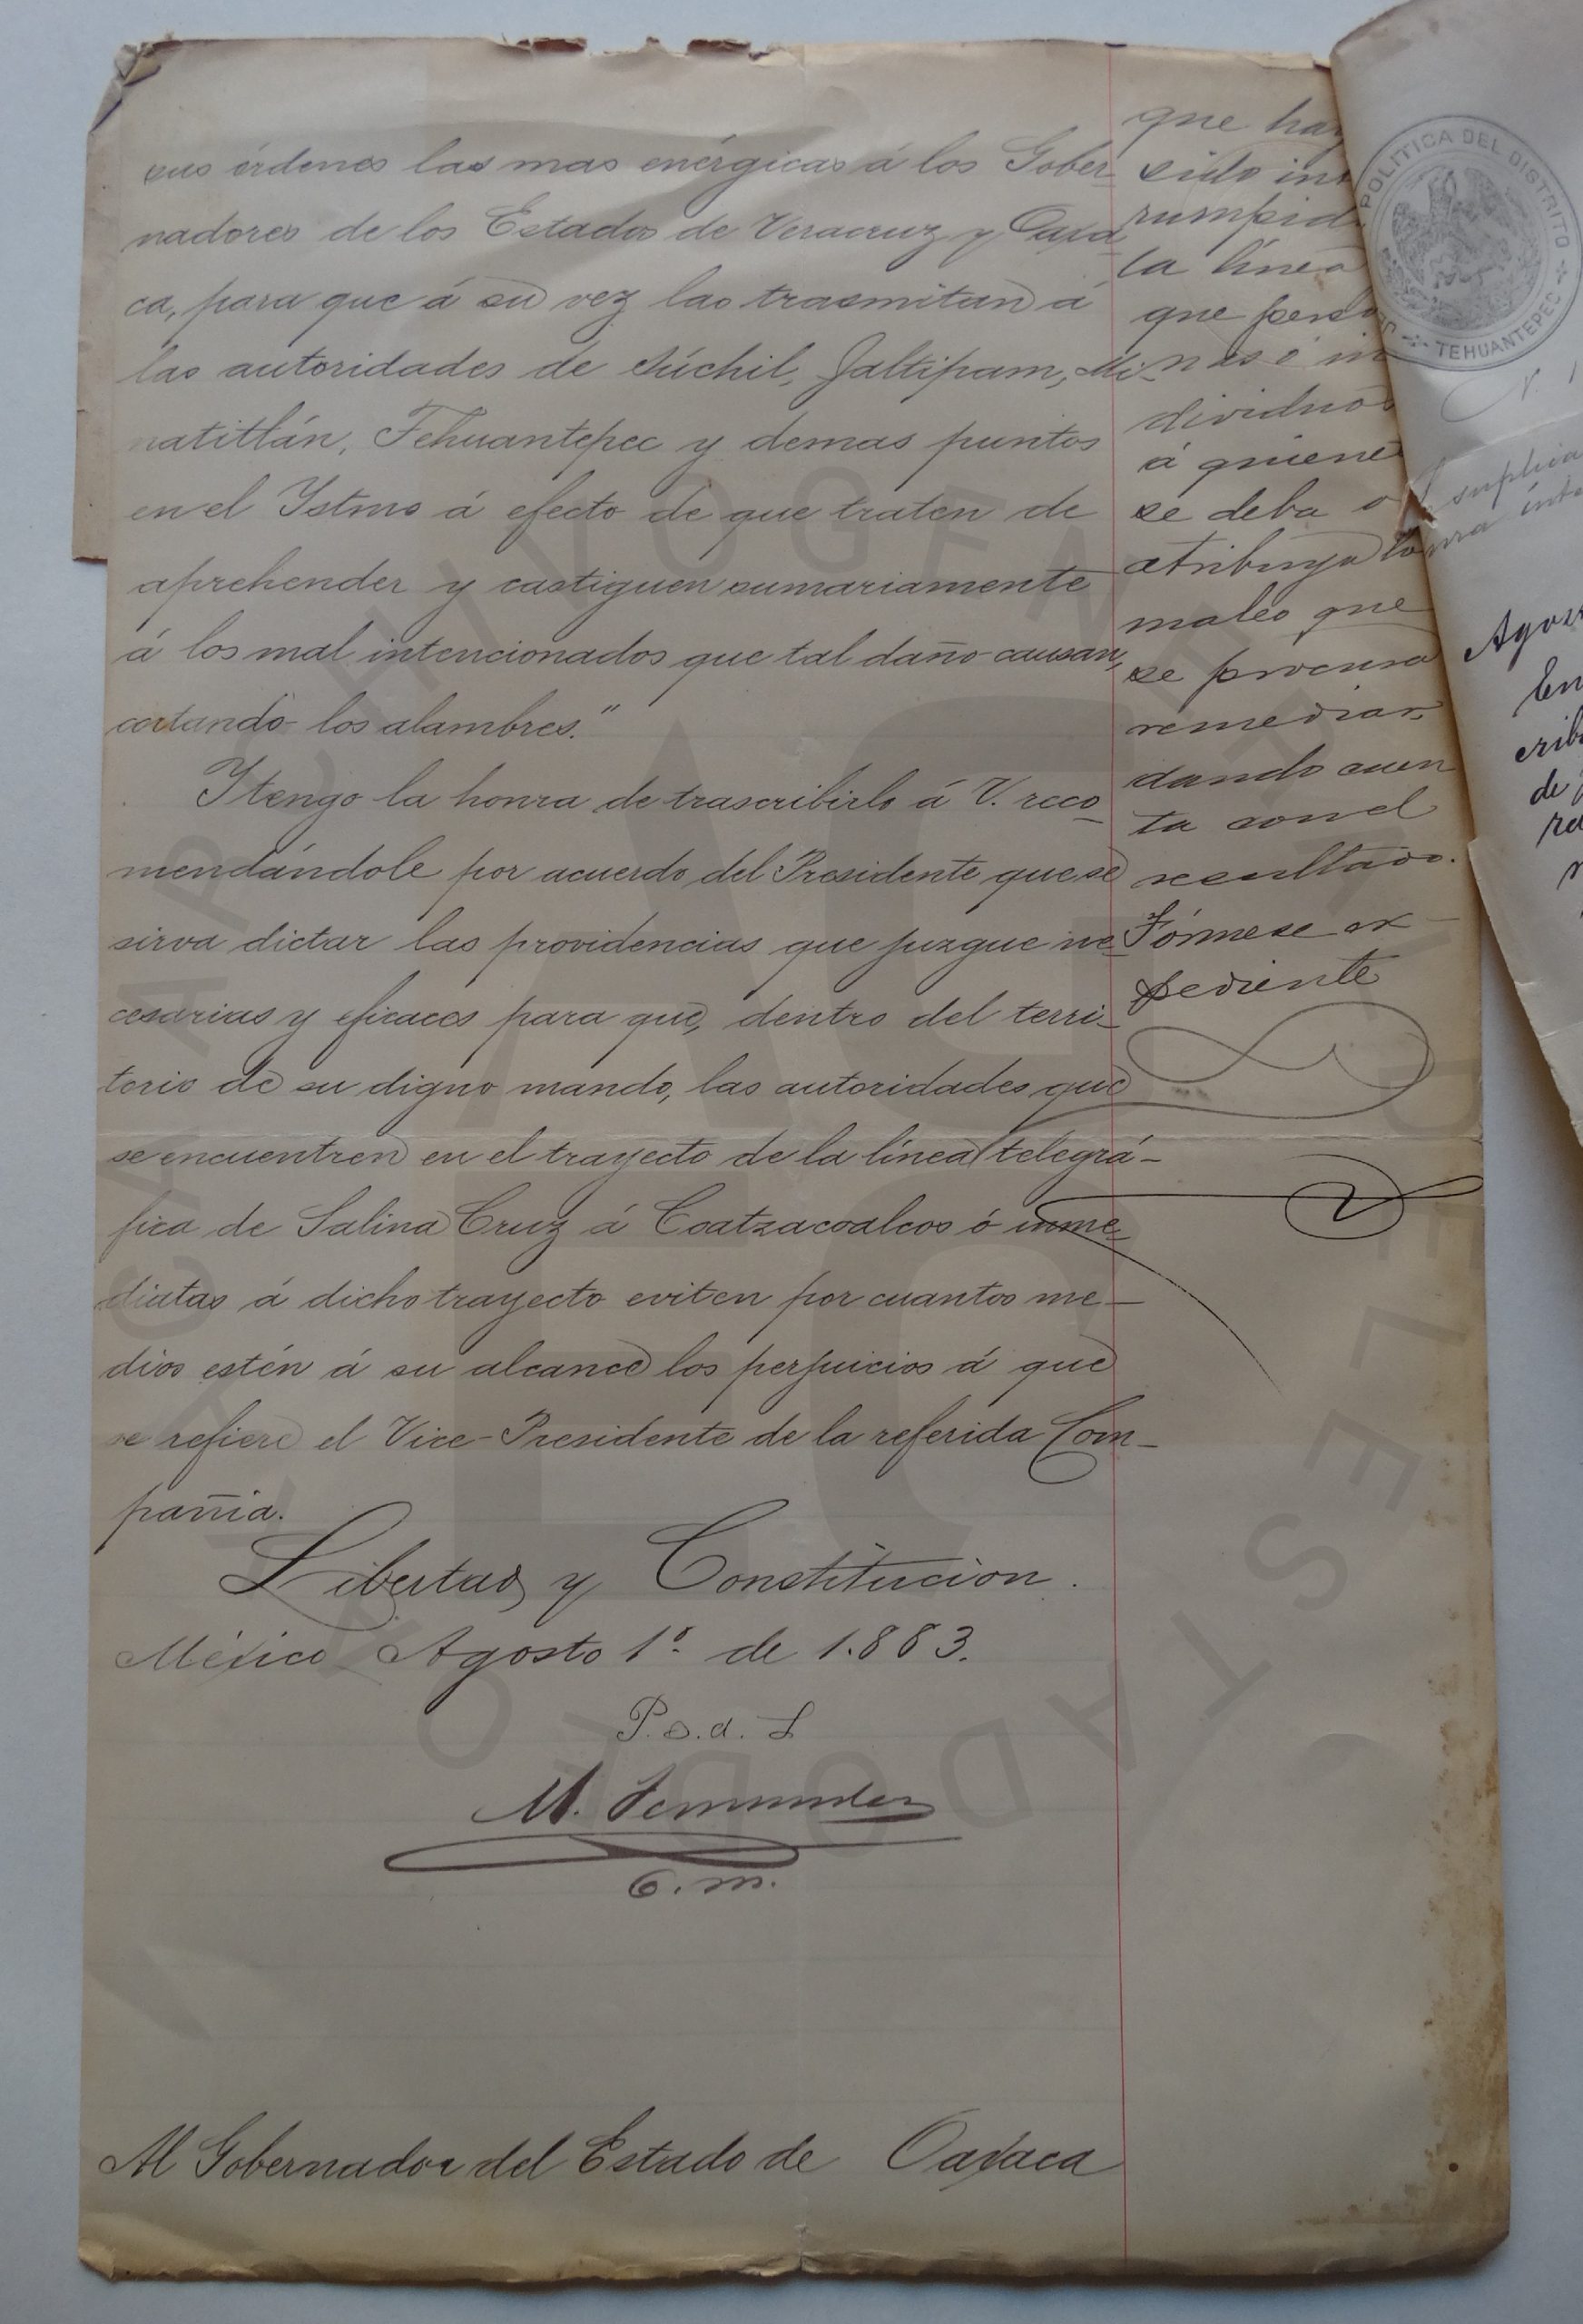 sus órdenes las mas enérgicas á los Gober-
nadores de los Estados de Veracruz y Oaxa
ca, para que á su vez las trasmitan á
las autoridades de Súchil, Jaltipam, Mi-
natitlán, Tehuantepec y demas puntos
en el Ystmo á efecto de que traten de
aprehender y castiguen sumariamente
á los mal intencionados que tal daño causan,
cortando los alambres."
Y tengo la honra de trascribirlo á V. reco-
mendándole por acuerdo del Presidente que se
sirva dictar las providencias que juzgue ne-
cesarias y eficaces para que, dentro del terri-
torio de su digno mando, las autoridades que
se encuentren en el trayecto de la línea telegrá-
fica de Salina Cruz á Coatzacoalcos ó inme-
diatas á dicho trayecto eviten por cuantos me-
dios estén á su alcance los perjuicios á que
se refiere el Vice-Presidente de la referida Com-
pañia.
Libertad y Constitucion.
México Agosto 1º de 1.883.
P. o. d. S
M. Fernandez
O. m.
Al Gobernador del Estado de Oaxaca
que hay
sido int
rumpid
la línea
que perso
nas ó in
dividuos
á quiene
se deba o
atribuya los
males que
se procura
remediar,
dando cuen
ta con el
resultado.
Fórmese ex
pediente
POLITICA DEL DISTRITO
TEHUANTEPEC
suplica
Agos
En
crib
de